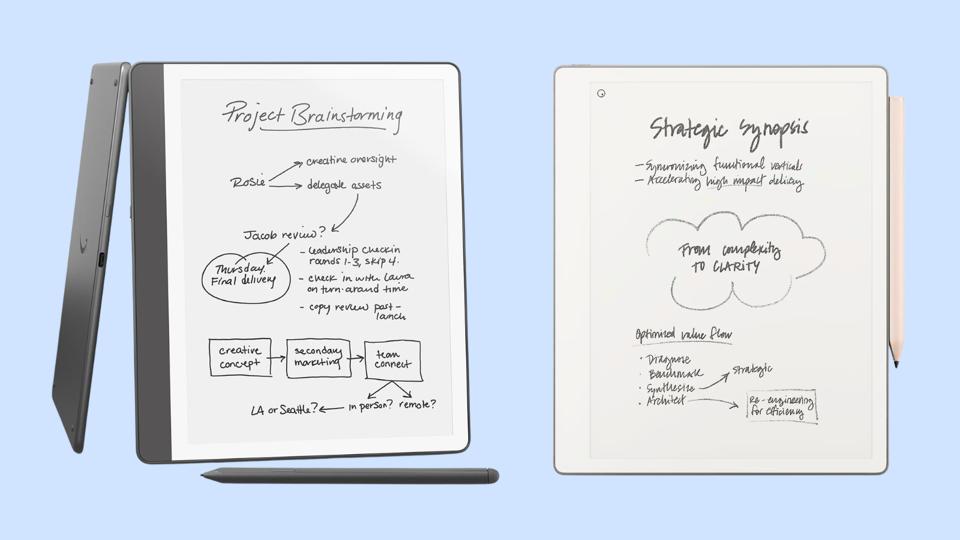 Project Brainstorming
Rosie
creative oversight
delegate assets
Jacob review?
- leadership checkin
rounds 1-3, skip 4.
- check in with Laura
on turn-around time
- copy review post-
launch
Thursday.
Final delivery
creative
concept
secondary
marketing
team
connect
LA or Seattle?
in person?
remote?
Strategic Synopsis
- Syncronizing functional verticals
- Accelerating high impact delivery
From complexity
TO CLARITY
Optimized value flow
· Diagnose
· Benchmark
· Synthesize
· Architect
strategic
Re-engineering
for efficiency